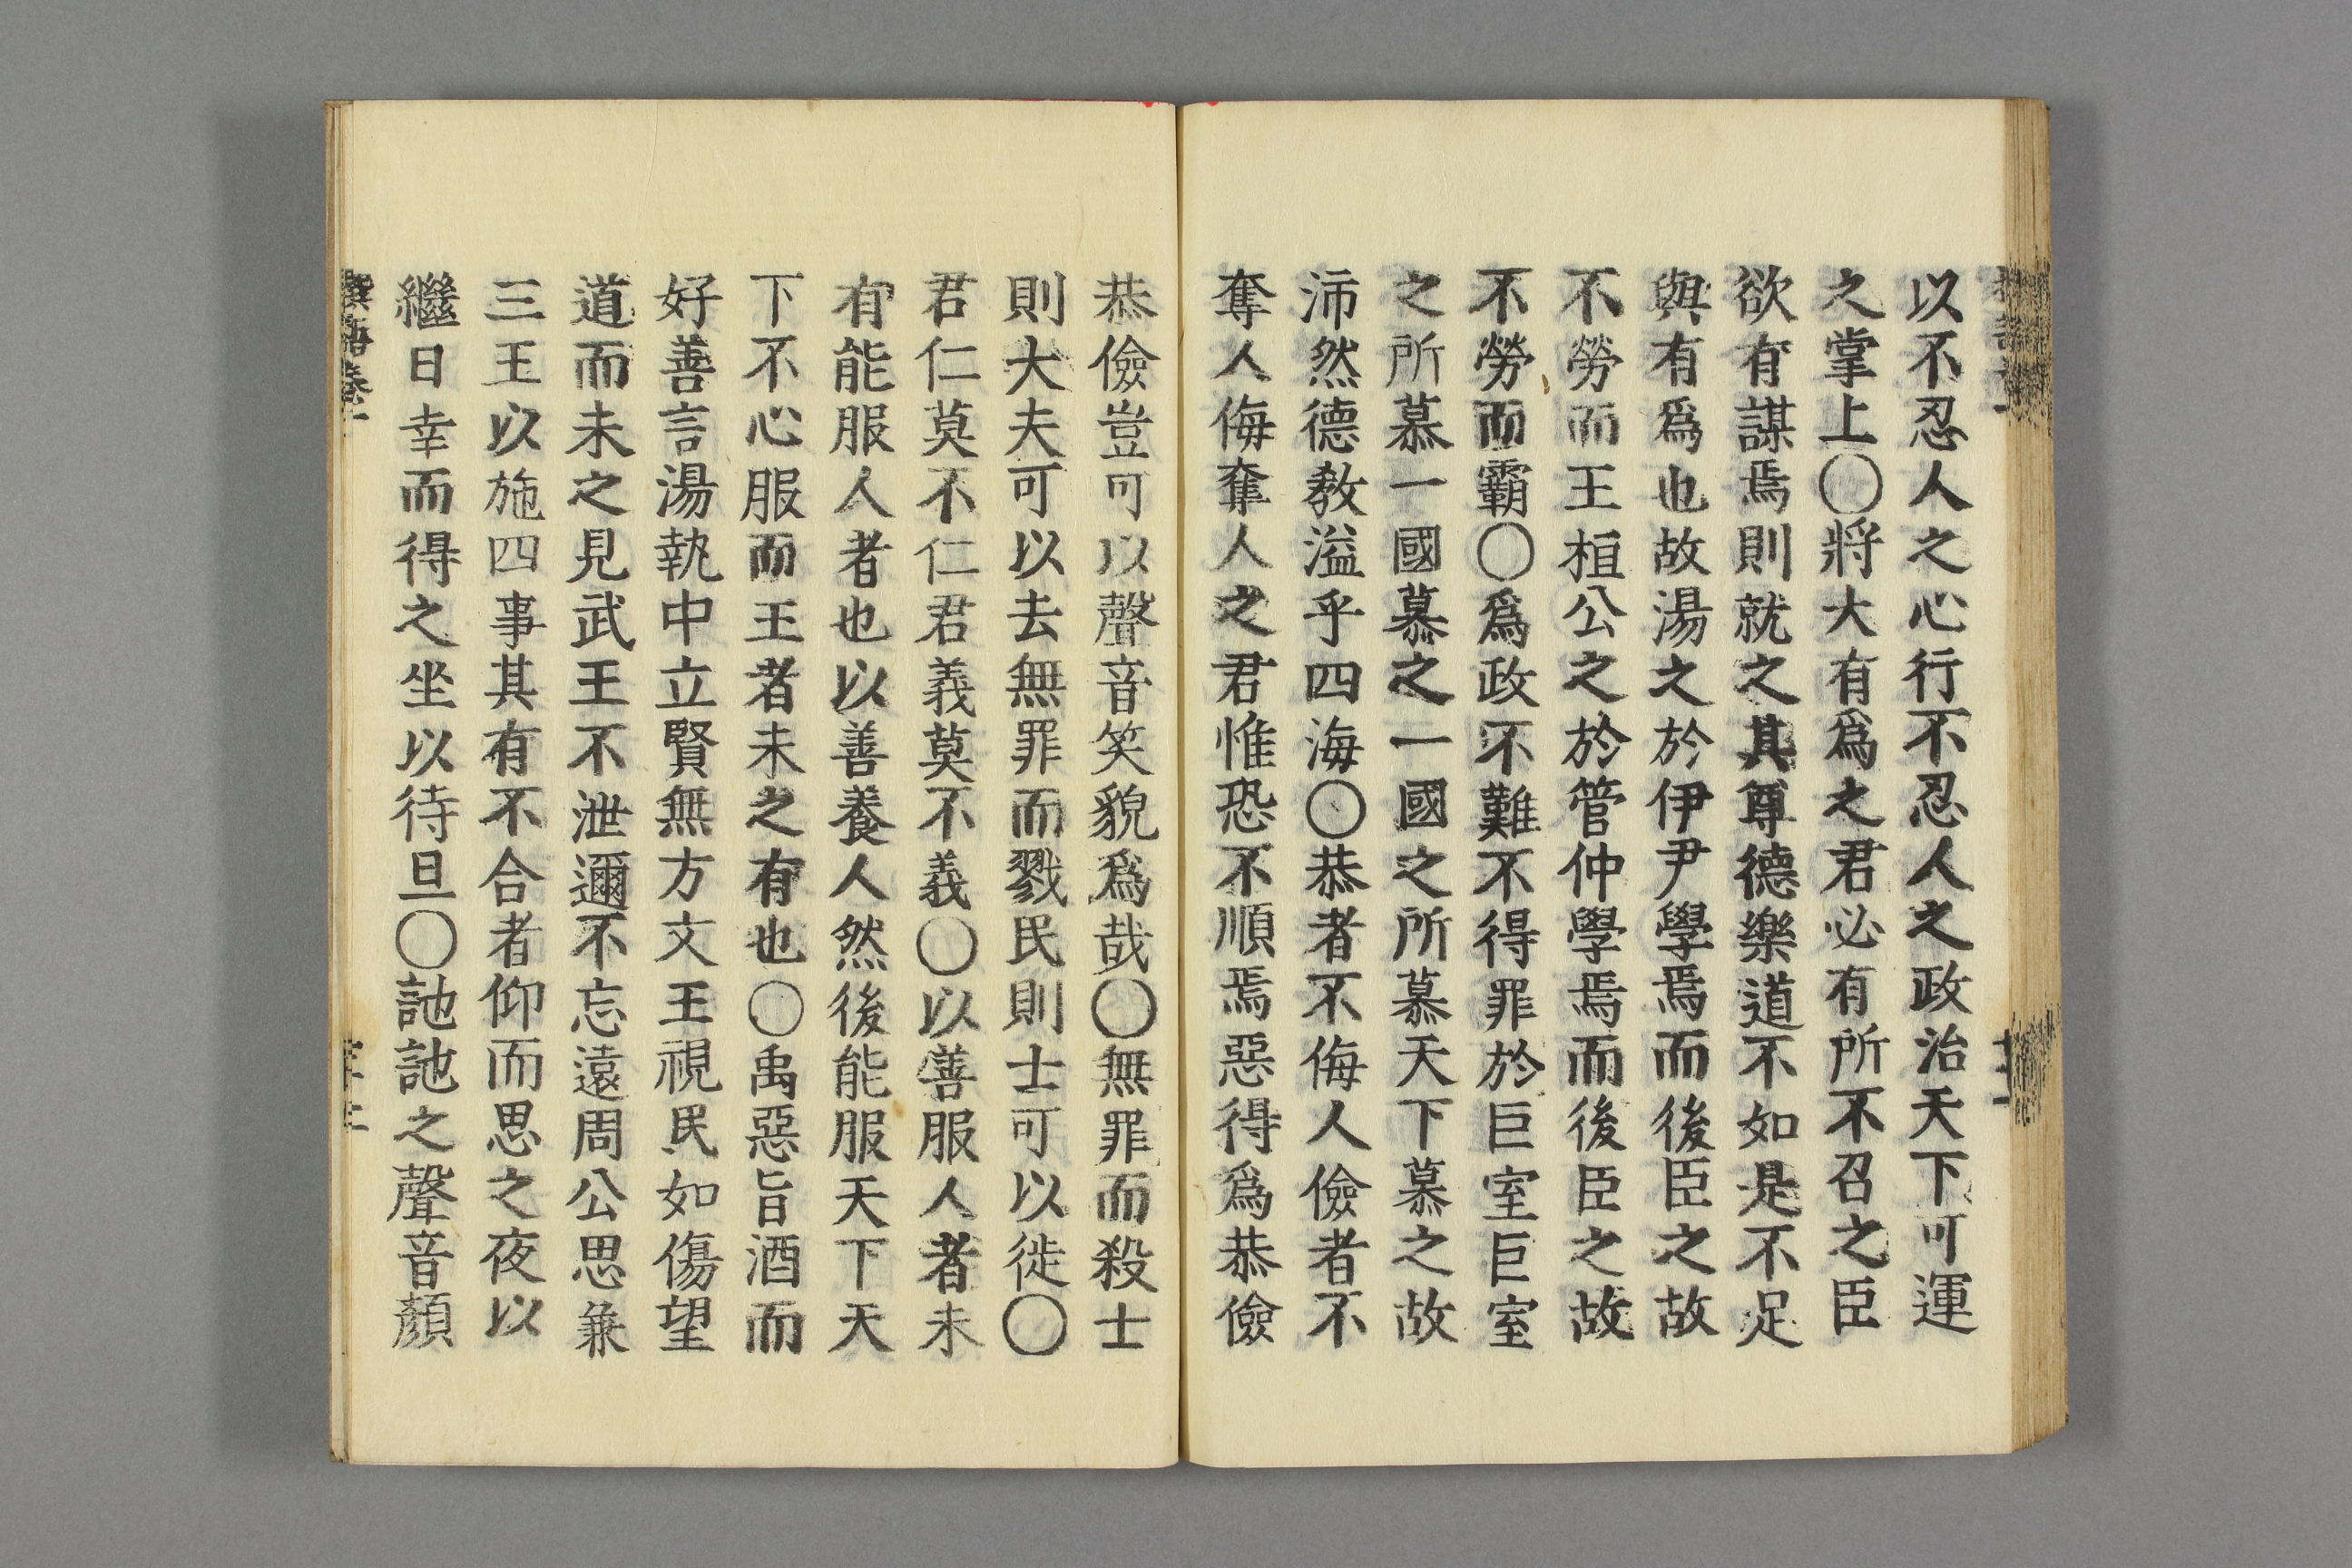 以不忍人之心行不忍人之政治天下可運
之掌上〇將大有爲之君必有所不召之臣
欲有謀焉則就之其尊德樂道不如是不足
與有爲也故湯之於伊尹學焉而後臣之故
不勞而王桓公之於管仲學焉而後臣之故
不勞而霸〇爲政不難不得罪於巨室巨室
之所慕一國慕之一國之所慕天下慕之故
沛然德教溢乎四海〇恭者不侮人儉者不
奪人侮奪人之君惟恐不順焉惡得爲恭儉
恭儉豈可以聲音笑貌爲哉〇無罪而殺士
則大夫可以去無罪而戮民則士可以徙〇
君仁莫不仁君義莫不義〇以善服人者未
有能服人者也以善養人然後能服天下天
下不心服而王者未之有也〇禹惡旨酒而
好善言湯執中立賢無方文王視民如傷望
道而未之見武王不泄邇不忘遠周公思兼
三王以施四事其有不合者仰而思之夜以
繼日幸而得之坐以待旦〇訑訑之聲音顏